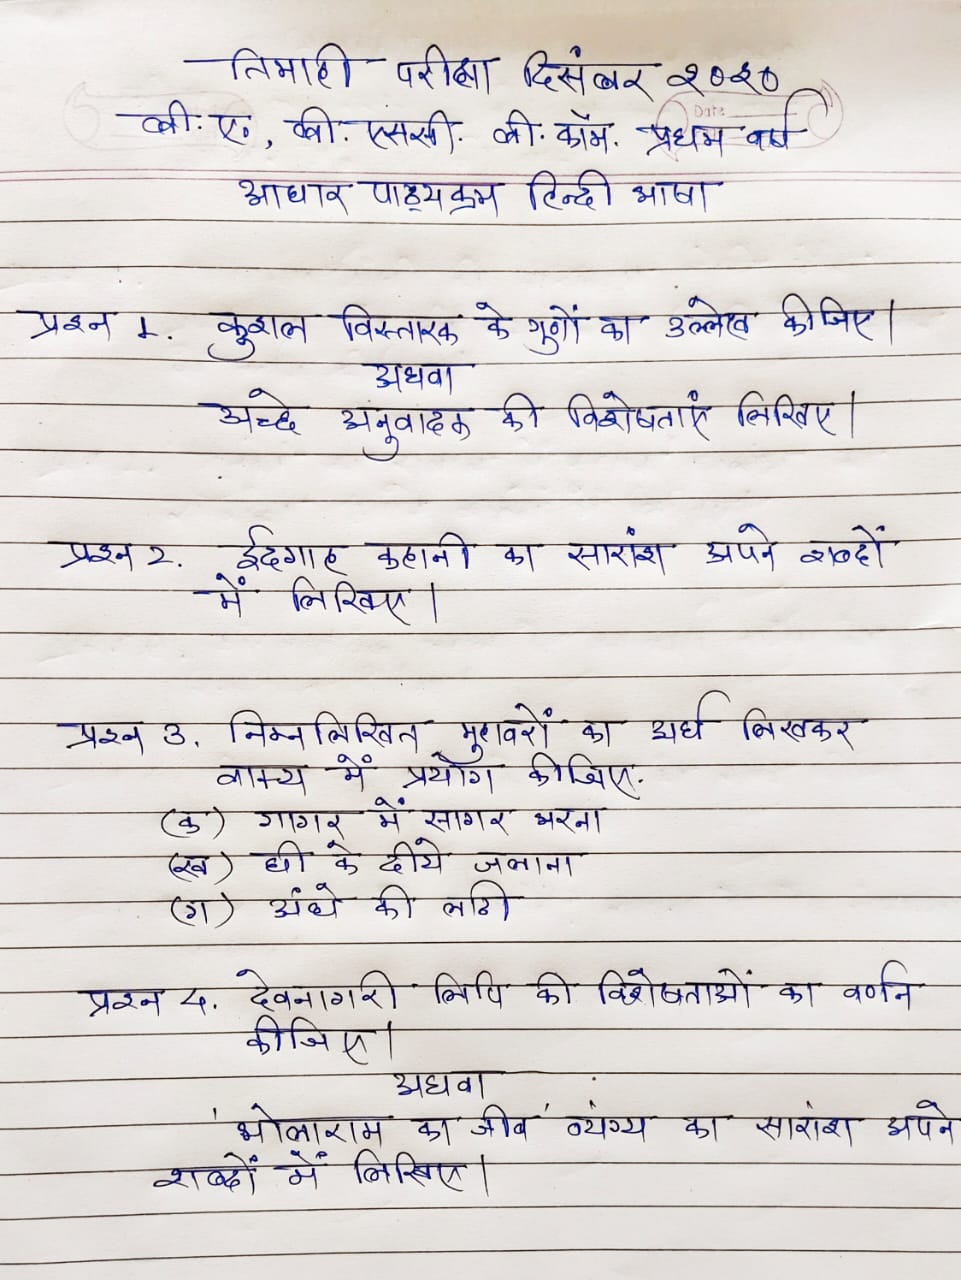 तिमाही परीक्षा दिसंबर २०२०
बी. ए., बी. एससी. बी. कॉम. प्रथम वर्ष
Date
आधार पाठ्यक्रम हिन्दी भाषा
प्रश्न 1. कुशल विस्तारक के गुणों का उल्लेख कीजिए।
अथवा
अच्छे अनुवादक की विशेषताएं लिखिए।
प्रश्न 2. ईदगाह कहानी का सारांश अपने शब्दों
में लिखिए।
प्रश्न 3. निम्नलिखित मुहावरों का अर्थ लिखकर
वाक्य में प्रयोग कीजिए.
(क) गागर में सागर भरना
(ख) घी के दीये जलाना
(ग) अंधे की लाठी
प्रश्न 4. देवनागरी लिपि की विशेषताओं का वर्णन
कीजिए।
अथवा
'भोलाराम का जीव' व्यंग्य का सारांश अपने
शब्दों में लिखिए।